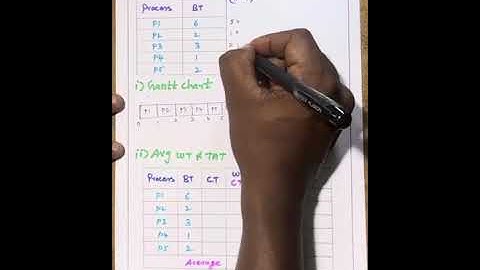 Process BT
P1 6
P2 2
P3 3
P4 1
P5 2
i) Gantt chart
P1 P2 P3 P4
0 1 2 3 4 5
ii) Avg WT & TAT
Process BT CT
P1 6
P2 2
P3 3
P4 1
P5 2
Average